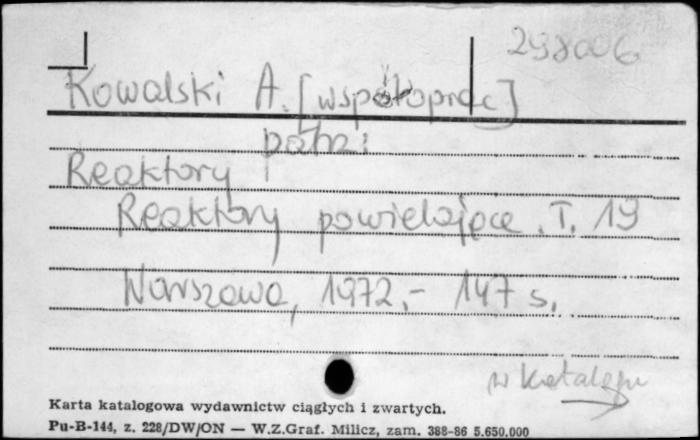 298006
Kowalski A. [współoprac]
patrz
Reaktory
Reaktory powielające. T. 19
Warszawa, 1972.- 147 s.
w katalogu
Karta katalogowa wydawnictw ciągłych i zwartych.
Pu-B-144, z. 228/DW/ON — W.Z.Graf. Milicz, zam. 388-86 5.650.000